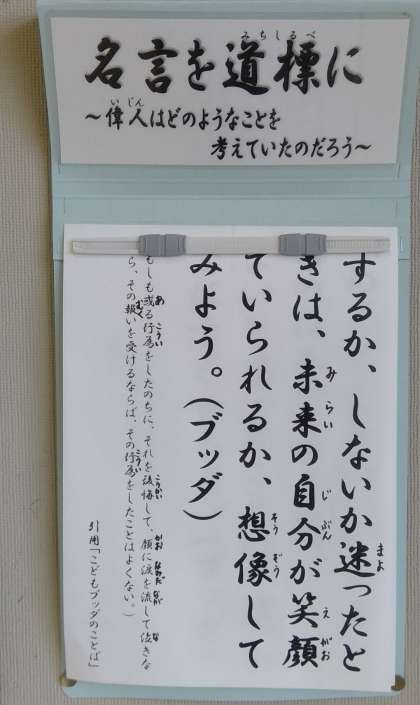 名言を道標に
～偉人はどのようなことを
考えていたのだろう～
するか、しないか迷ったと
きは、未来の自分が笑顔
ていられるか、想像して
みよう。(ブッダ)
もしも或る行為をしたのちに、それを後悔して、顔に涙を流して泣きな
ら、その報いを受けるならば、その行為をしたことはよくない。)
引用「こどもブッダのことば」